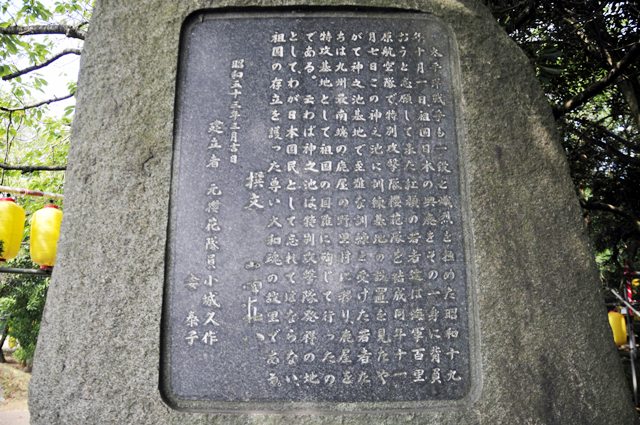 太平洋戦争も一段と熾烈を極めた昭和十九
年十月一日、祖国日本の興廃をその一身に背負
おうと志願して来た紅顔の若者達は海軍百里
原航空隊で特別攻撃隊桜花隊を結成同年十一
月七日この神之池に訓練基地の設置を見たや
がて神之池基地で至難な訓練を受けた若者た
ちは九州最南端の鹿屋の野里村に移り鹿屋を
特攻基地として祖国の国難に殉じて行ったの
である。云わば神之池は特別攻撃隊発祥の地
として、わが日本国民として忘れてはならない
祖国の存立を護った尊い大和魂の故里である
撰文
昭和五十三年三月吉日
建立者 元櫻花隊員 小城久作
妻 泰子